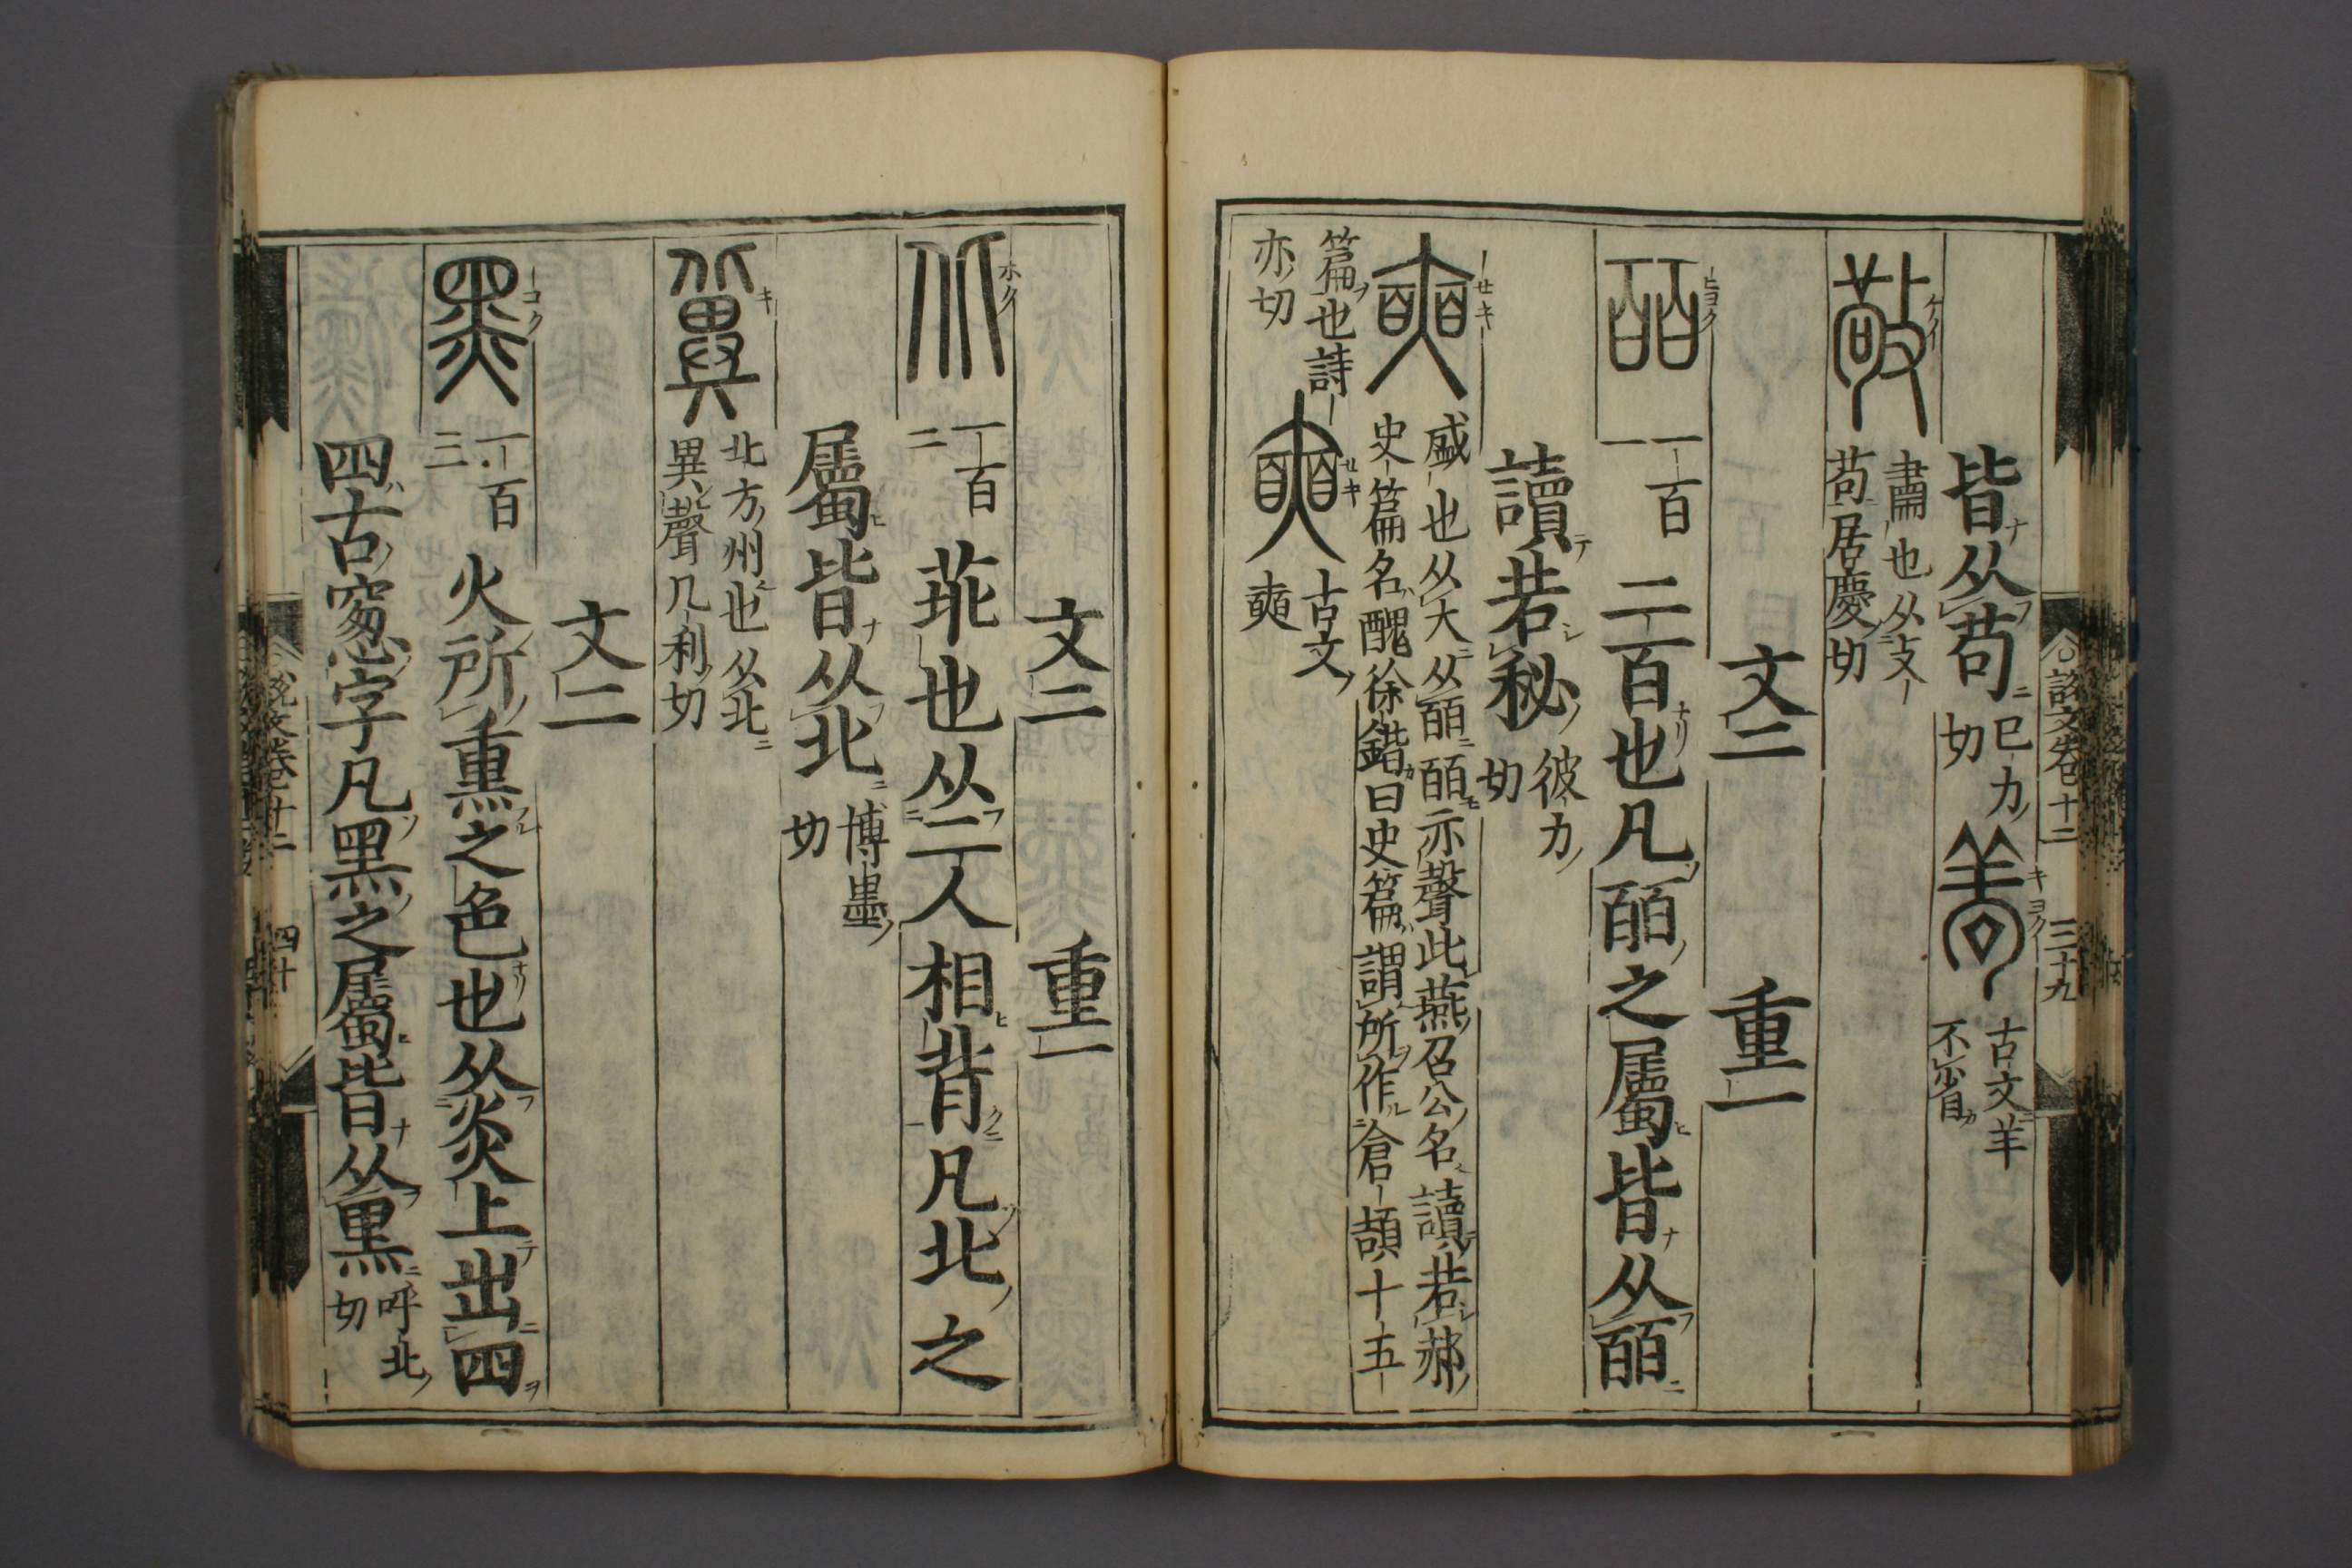 皆从茍 巳力切 古文羊不省
敬 肅也从攴茍居慶切
文二 重一
皕 一百一 二百也凡皕之屬皆从皕
讀若祕 彼力切
奭 盛也从大从皕皕亦聲此燕召公名讀若郝
史篇名醜徐鍇曰史篇謂所作倉頡十五
篇也詩 奭 古文奭
亦切
說文卷十二 三十九
文二 重一
北 一百二 𦮃也从二人相背凡北之
屬皆从北 博墨切
冀 北方州也从北異聲几利切
文二
黑 一百三 火所熏之色也从炎上出四
四古窻字凡黑之屬皆从黑 呼北切
說文卷十二 四十